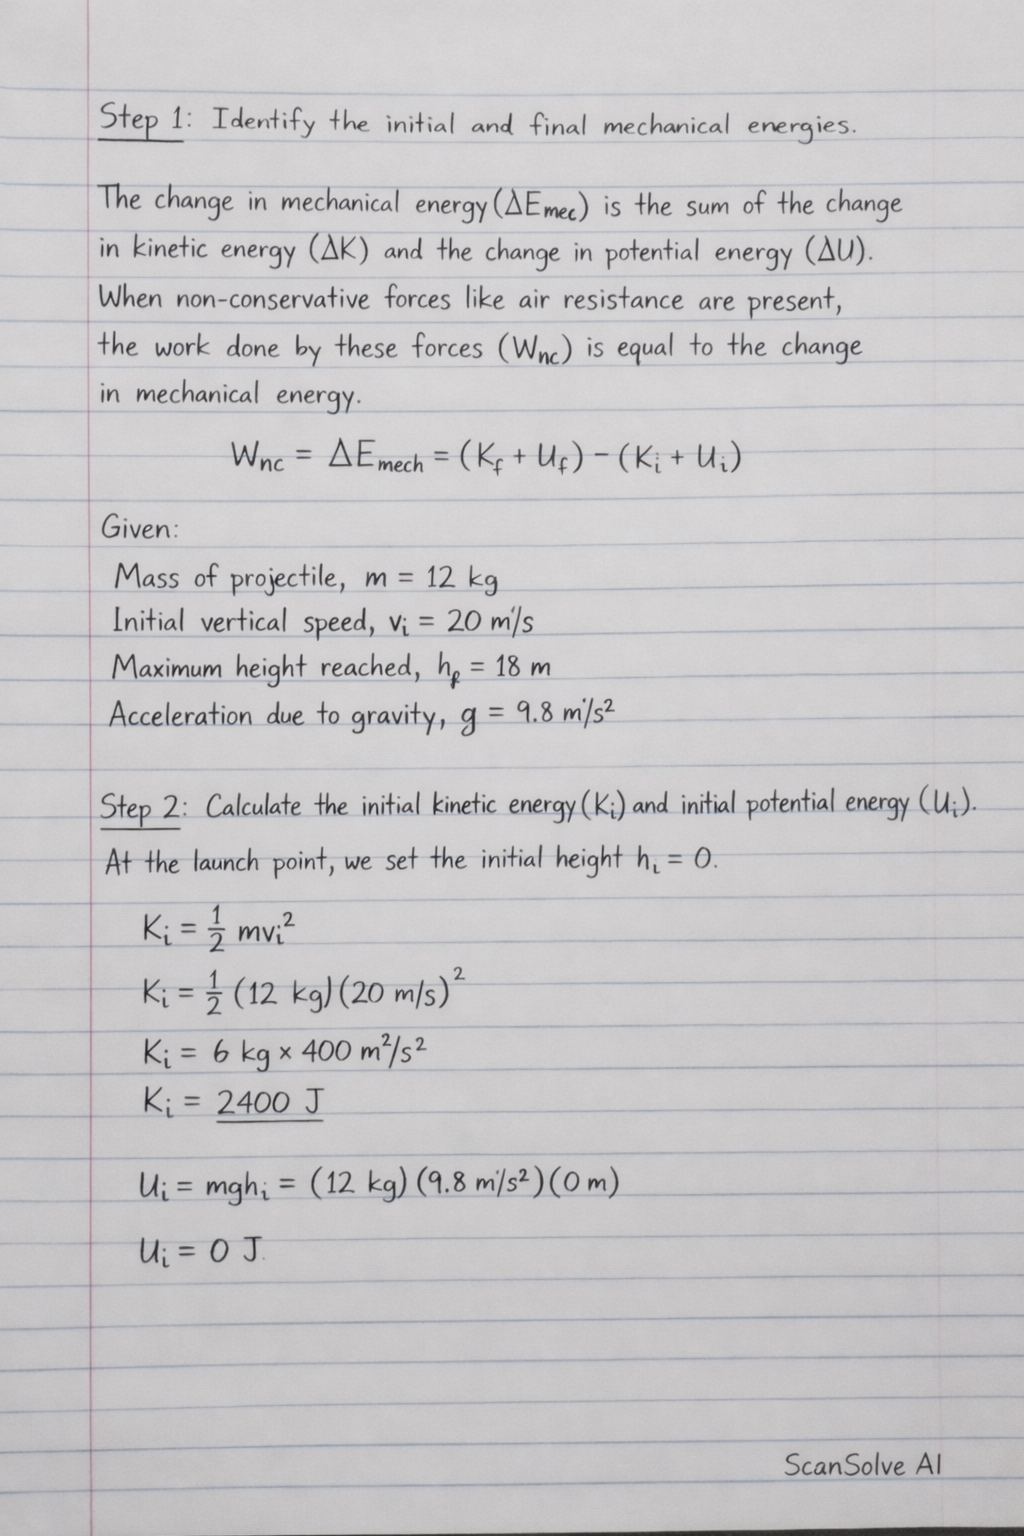 Step 1: Identify the initial and final mechanical energies.
The change in mechanical energy (ΔEmec) is the sum of the change
in kinetic energy (ΔK) and the change in potential energy (ΔU).
When non-conservative forces like air resistance are present,
the work done by these forces (Wnc) is equal to the change
in mechanical energy.
Wnc = ΔEmech = (Kf + Uf) − (Ki + Ui)
Given:
Mass of projectile, m = 12 kg
Initial vertical speed, vi = 20 m/s
Maximum height reached, hf = 18 m
Acceleration due to gravity, g = 9.8 m/s²
Step 2: Calculate the initial kinetic energy (Ki) and initial potential energy (Ui).
At the launch point, we set the initial height hi = 0.
Ki = 1/2 mvi²
Ki = 1/2 (12 kg)(20 m/s)²
Ki = 6 kg × 400 m²/s²
Ki = 2400 J
Ui = mghi = (12 kg)(9.8 m/s²)(0 m)
Ui = 0 J.
ScanSolve AI